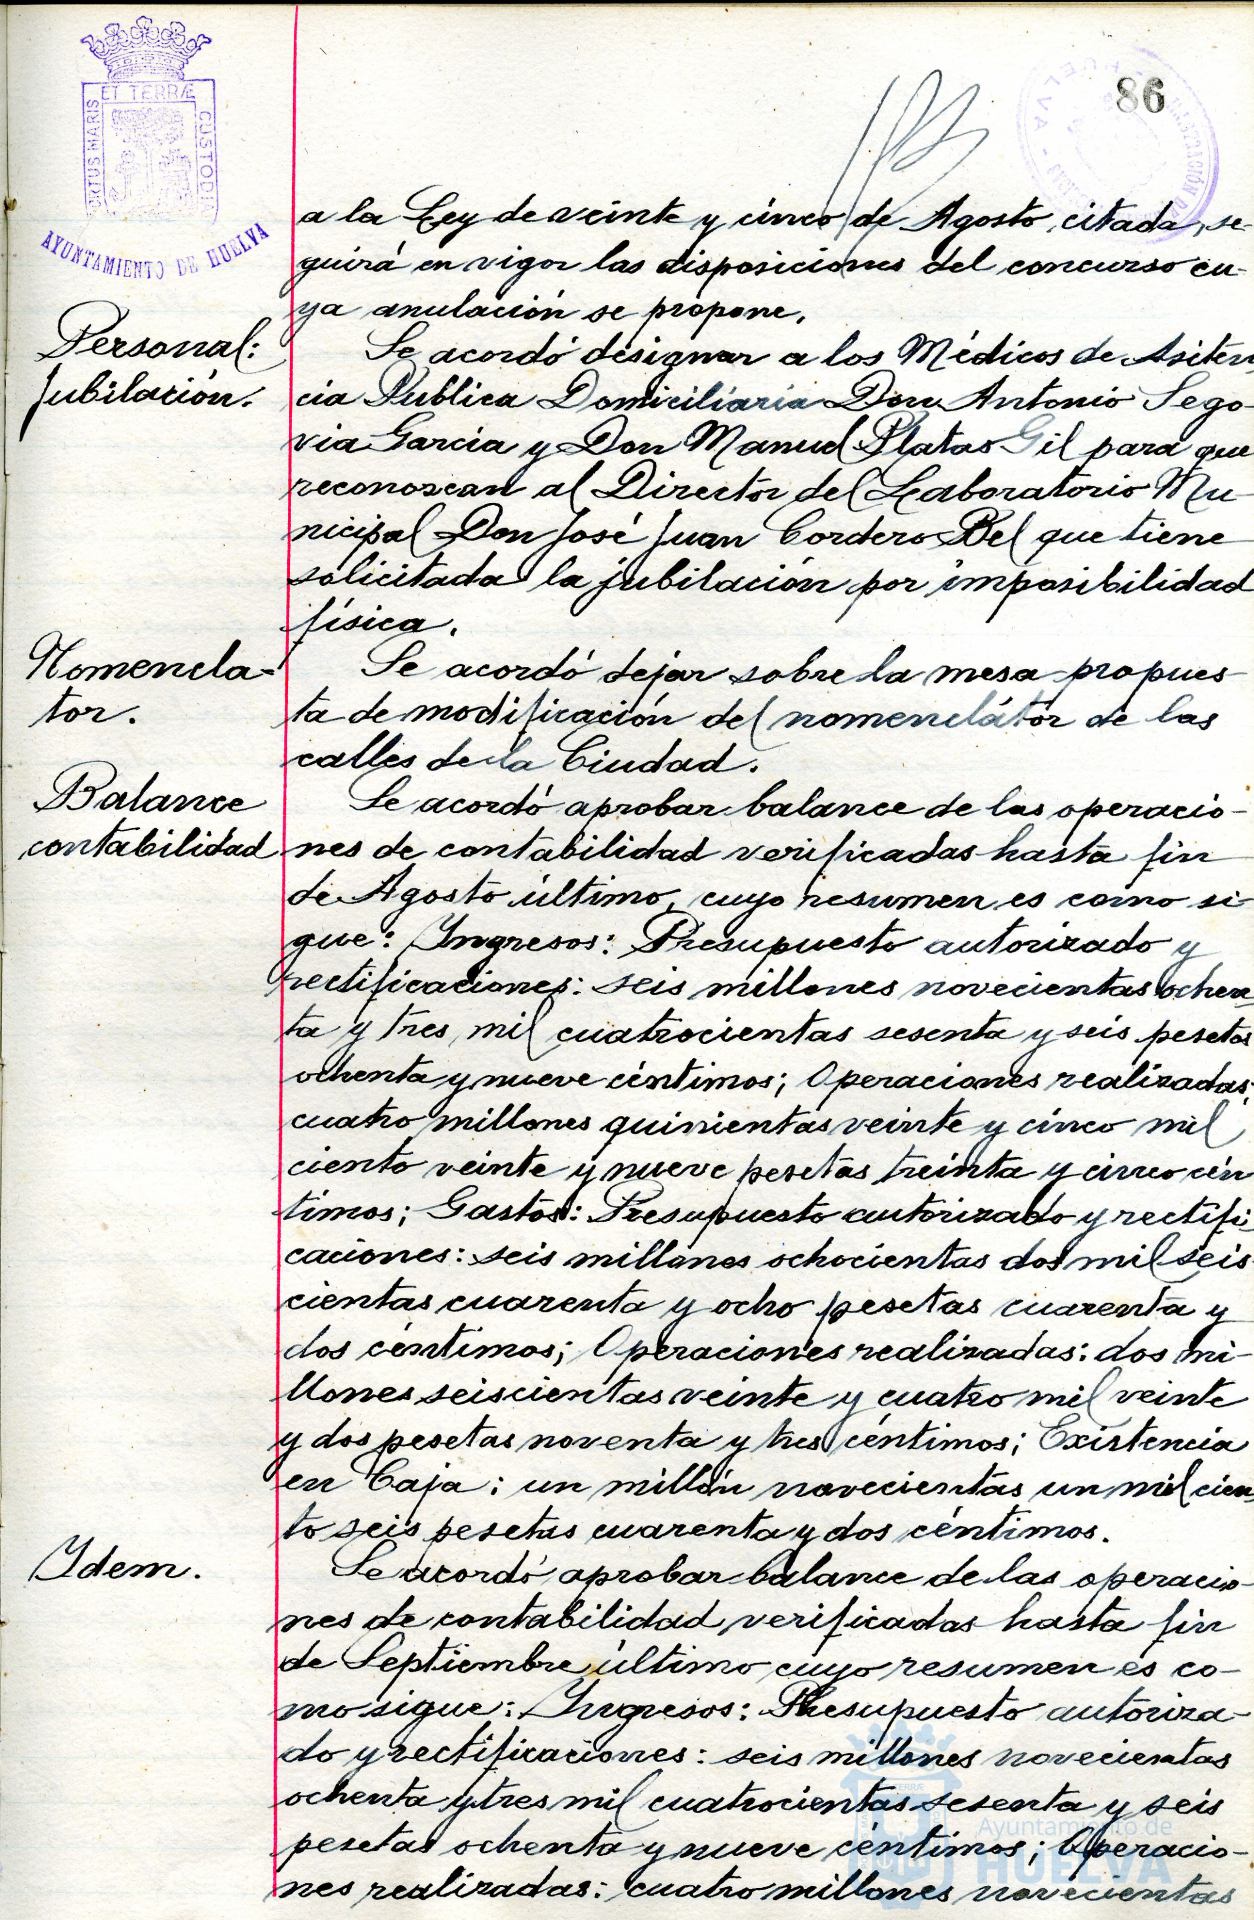 86
ET TERRÆ
PORTUS MARIS
CUSTODIA
AYUNTAMIENTO DE HUELVA
a la Ley de veinte y cinco de Agosto citada, se-
guirá en vigor las disposiciones del concurso cu-
ya anulación se propone.
Personal:
Jubilación.
Se acordó designar a los Médicos de Asiten
cia Publica Domiciliaria Don Antonio Sego-
via García y Don Manuel Platas Gil para que
reconozcan al Director del Laboratorio Mu-
nicipal Don José Juan Cordero Bel que tiene
solicitada la jubilación por imposibilidad
física.
Nomencla-
tor.
Se acordó dejar sobre la mesa propues-
ta de modificación del nomenclátor de las
calles de la Ciudad.
Balance
contabilidad
Se acordó aprobar balance de las operacio-
nes de contabilidad verificadas hasta fin
de Agosto último, cuyo resumen es como si-
gue: Ingresos: Presupuesto autorizado y
rectificaciones: seis millones novecientas ochen-
ta y tres mil cuatrocientas sesenta y seis pesetas
ochenta y nueve céntimos; Operaciones realizadas:
cuatro millones quinientas veinte y cinco mil
ciento veinte y nueve pesetas treinta y cinco cén
timos; Gastos: Presupuesto autorizado y rectifi
caciones: seis millones ochocientas dos mil seis-
cientas cuarenta y ocho pesetas cuarenta y
dos céntimos; Operaciones realizadas: dos mi-
llones seiscientas veinte y cuatro mil veinte
y dos pesetas noventa y tres céntimos; Existencia
en Caja: un millón novecientas un mil cien-
to seis pesetas cuarenta y dos céntimos.
Ydem.
Se acordó aprobar balance de las operacio-
nes de contabilidad verificadas hasta fin
de Septiembre último cuyo resumen es co-
mo sigue: Ingresos: Presupuesto autoriza-
do y rectificaciones: seis millones novecientas
ochenta y tres mil cuatrocientas sesenta y seis
pesetas ochenta y nueve céntimos; Operacio-
nes realizadas: cuatro millones novecientas
Ayuntamiento de
HUELVA